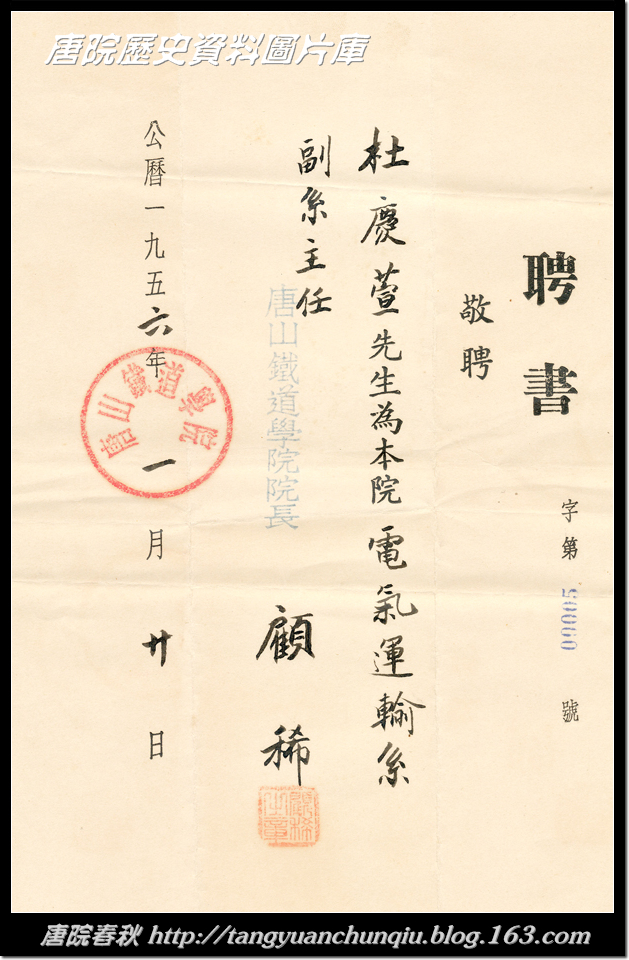 唐院歷史資料圖片庫
聘書
字第
500060
號
敬聘
杜慶萱先生為本院電氣運輸系
副系主任
唐山鐵道學院院長
顧稀
顧稀之章
公曆一九五六年一月廿日
唐山鐵道學院
唐院春秋 http://tangyuanchunqiu.blog.163.com